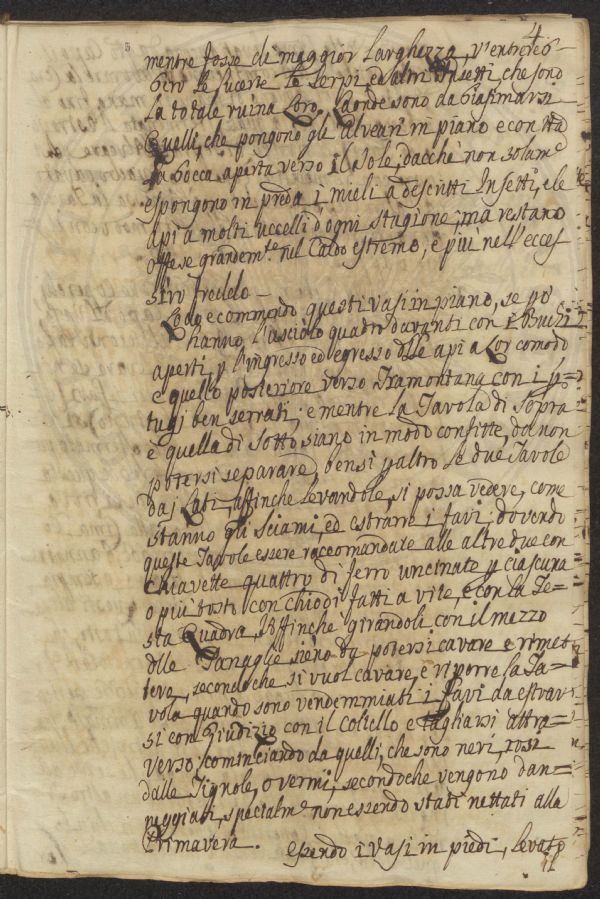 4
mentre fosse di maggior Larghezza, v'entrereb=
bero Le lucerte Le Serpi, ed altri Insetti, che sono
La totale ruina Loro, Laonde sono da biasimarsi
Quelli, che pongono gli Alveari in piano e con
La bocca aperta verso il Sole, dacchè non solamᵉ
espongono in preda i mieli a descritti Insetti, e le
api a molti uccelli d'ogni stagione; ma restano
Offese grandemᵗᵉ nel Caldo estremo, e più nell'ecces
sivo freddo –
Lodo e commendo questi vasi in piano, se pò
hanno L'asciolo quadro davanti con i Buchi
aperti, p l'ingresso ed egresso dlle api a Lor comodo
e quello posteriore verso Tramontana con i p=
tugi ben serrati; e mentre La Tavola di Sopra
e quella di Sotto siano in modo confitte, da non
potersi separare, bensì p altro Le due Tavole
dai Lati, affinche levandole, si possa vedere, come
stanno gli Sciami, ed estrarre i favi; dovendo
queste Tavole essere raccomandate alle altre due con
chiavette quattro di ferro uncinate p ciascuna
o più tosto con chiodi fatti a vite, e con La Te=
sta Quadra, affinchè girandoli con il mezzo
dlle Tanaglie sieno da potersi cavare e rimet
tere, secondoche si vuol cavare, e riporre la Ta=
vola quando sono vendemmiati i favi da estrar
si con Giudizio con il coltello e tagliarsi attra=
verso, cominciando da quelli, che sono neri, rosi
dalle Tignole, o vermi, secondoche vengono dan=
neggiati, specialmᵉ non essendo stati nettati alla
Primavera. essendo i vasi in piedi, levato
il